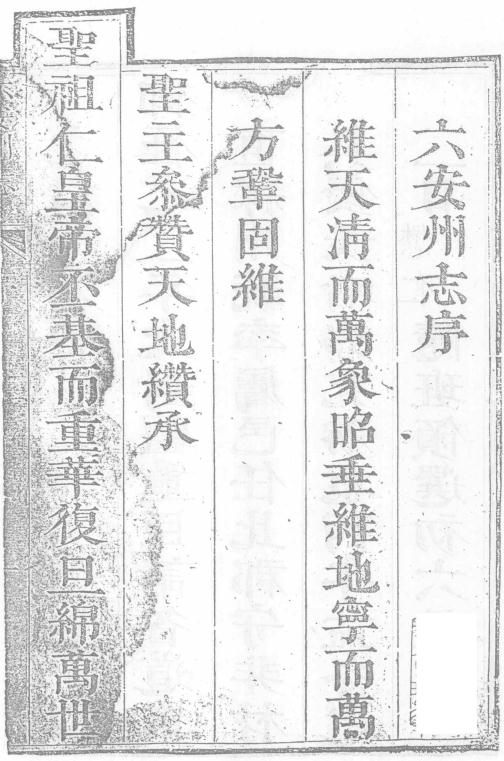 六安州志序
維天清而萬象昭垂維地寧而萬
方鞏固維
聖王參贊天地纘承
聖祖仁皇帝丕基而重華復旦綿萬世